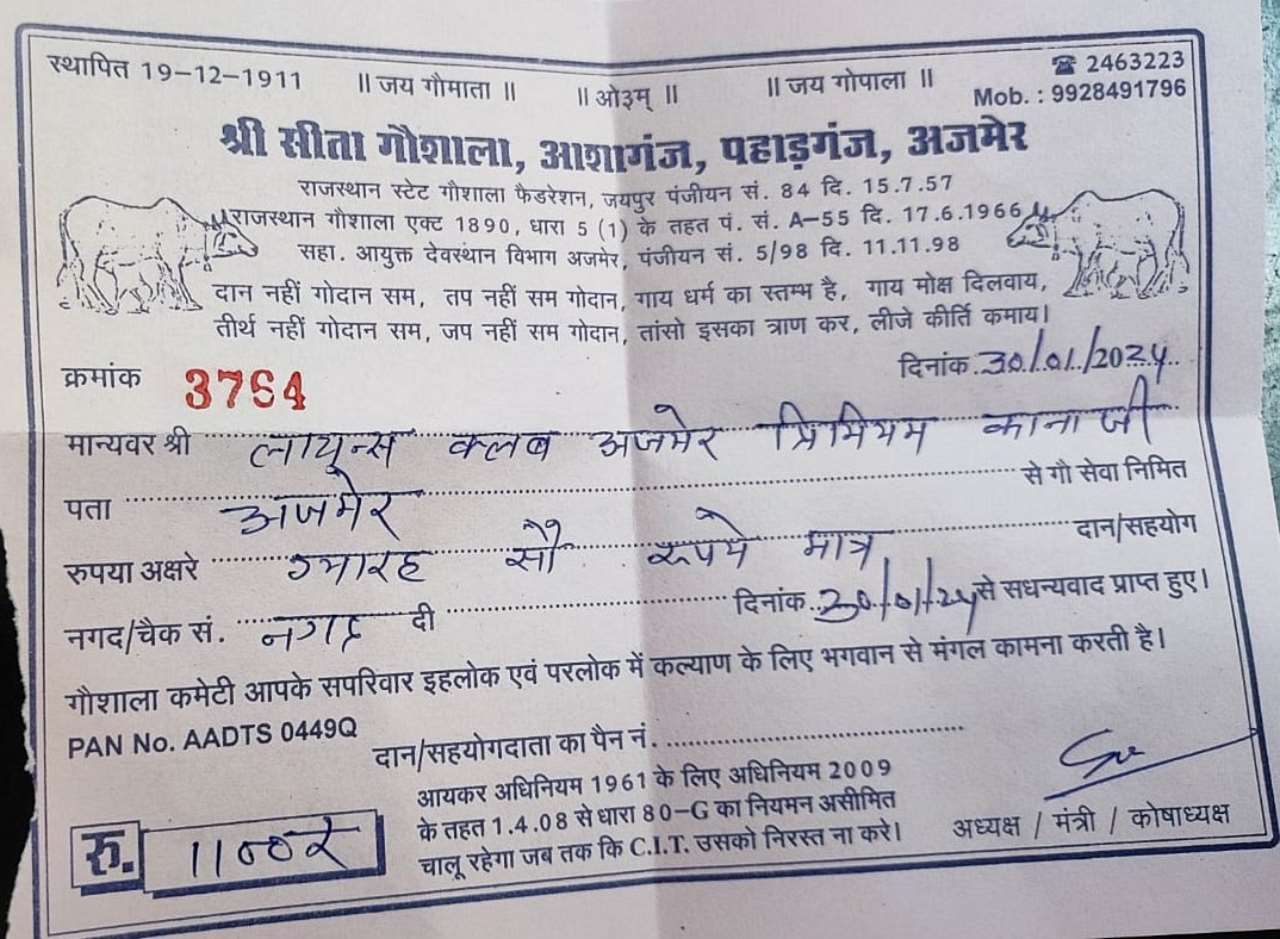 स्थापित 19-12-1911 ॥ जय गौमाता ॥ ॥ ओ३म् ॥ ॥ जय गोपाला ॥ ☎ 2463223
Mob. : 9928491796
श्री सीता गौशाला, आशागंज, पहाड़गंज, अजमेर
राजस्थान स्टेट गौशाला फैडरेशन, जयपुर पंजीयन सं. 84 दि. 15.7.57
राजस्थान गौशाला एक्ट 1890, धारा 5 (1) के तहत पं. सं. A-55 दि. 17.6.1966
सहा. आयुक्त देवस्थान विभाग अजमेर, पंजीयन सं. 5/98 दि. 11.11.98
दान नहीं गोदान सम, तप नहीं सम गोदान, गाय धर्म का स्तम्भ है, गाय मोक्ष दिलवाय,
तीर्थ नहीं गोदान सम, जप नहीं सम गोदान, तांसो इसका त्राण कर, लीजे कीर्ति कमाय।
क्रमांक 3764 दिनांक 30/01/2024
मान्यवर श्री लायून्स क्लब अजमेर प्रिमियम काना जी
पता अजमेर से गौ सेवा निमित
रुपया अक्षरे ग्यारह सौ रूपये मात्र दान/सहयोग
नगद/चैक सं. नगद दी दिनांक 30/01/24 से सधन्यवाद प्राप्त हुए।
गौशाला कमेटी आपके सपरिवार इहलोक एवं परलोक में कल्याण के लिए भगवान से मंगल कामना करती है।
PAN No. AADTS 0449Q दान/सहयोगदाता का पैन नं.
आयकर अधिनियम 1961 के लिए अधिनियम 2009
के तहत 1.4.08 से धारा 80-G का नियमन असीमित
चालू रहेगा जब तक कि C.I.T. उसको निरस्त ना करे।
रु. 1100
अध्यक्ष / मंत्री / कोषाध्यक्ष